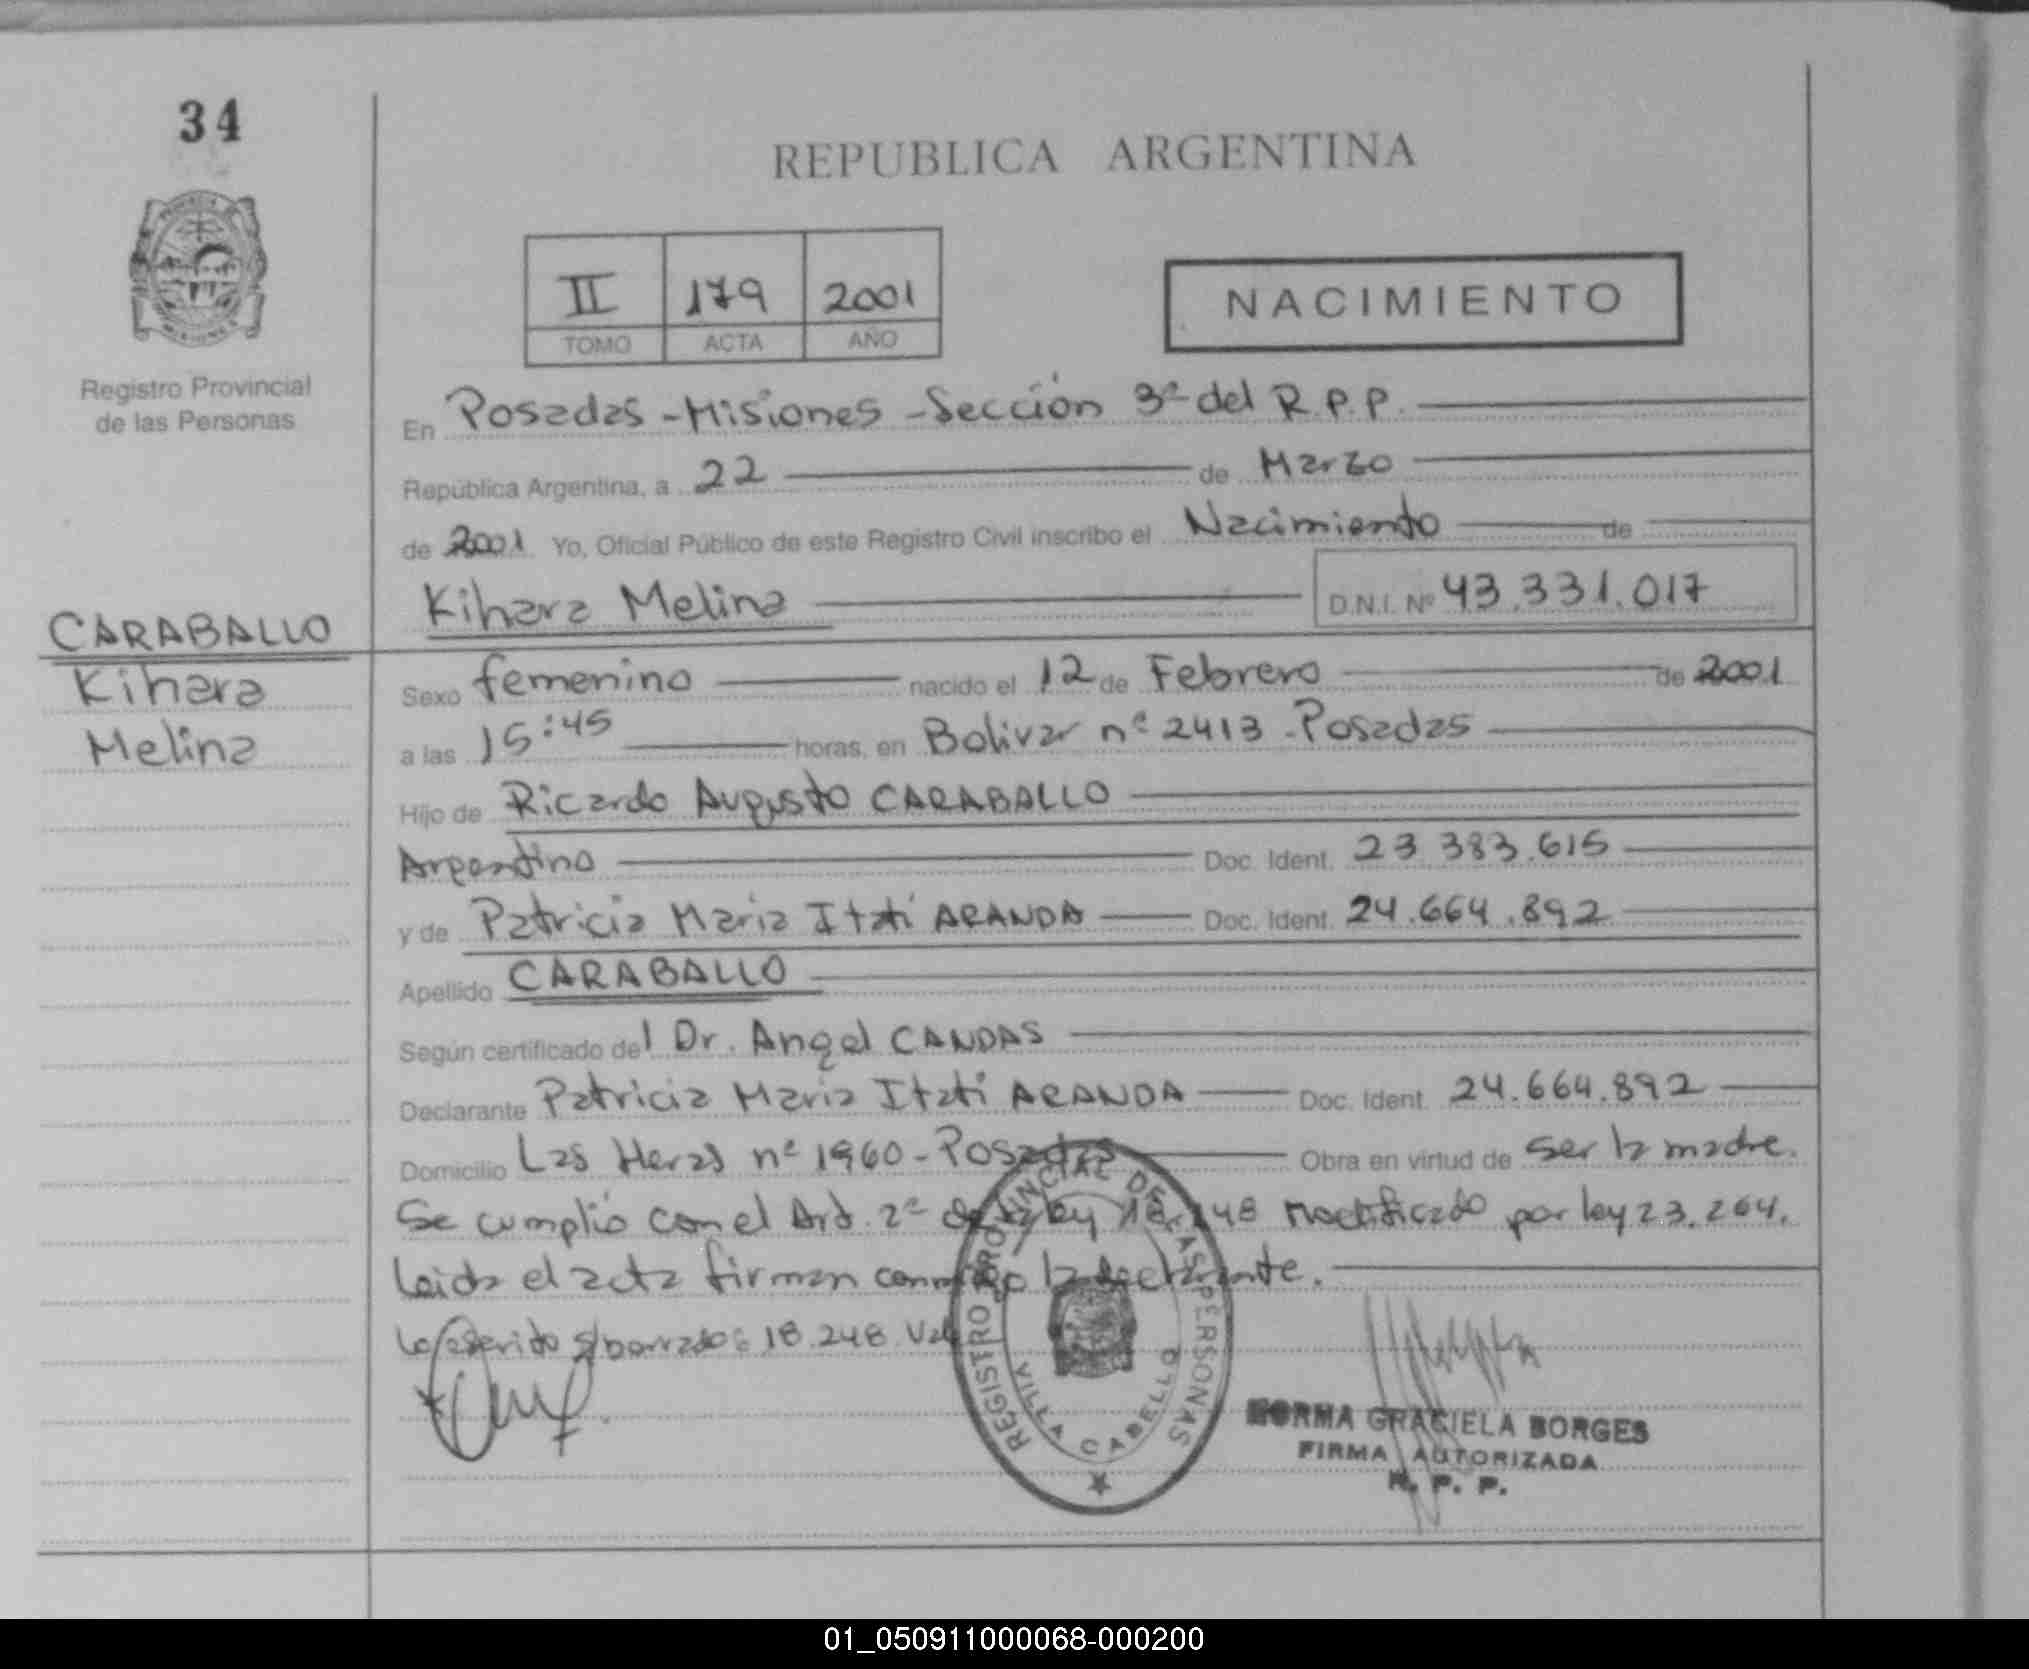 34
REPUBLICA ARGENTINA
II 179 2001
TOMO ACTA AÑO
NACIMIENTO
Registro Provincial
de las Personas
En Posadas - Misiones - Sección 3ª del R.P.P.
República Argentina, a 22 de Marzo
de 2001 Yo, Oficial Público de este Registro Civil inscribo el Nacimiento de
Kihara Melina D.N.I. Nº 43.331.017
CARABALLO
Kihara
Melina
Sexo femenino nacido el 12 de Febrero de 2001
a las 15:45 horas, en Bolivar nº 2413 - Posadas
Hijo de Ricardo Augusto CARABALLO
Argentino Doc. Ident. 23.383.615
y de Patricia Maria Itatí ARANDA Doc. Ident. 24.664.892
Apellido CARABALLO
Según certificado del Dr. Angel CANDAS
Declarante Patricia Maria Itatí ARANDA Doc. Ident. 24.664.892
Domicilio Las Heras nº 1960 - Posadas Obra en virtud de ser la madre.
Se cumplió con el Art. 2º de la ley 18.248 Modificado por ley 23.264.
Leida el acta firman conmigo la declarante.
Lo escrito s/borrado: 18.248. Vale
REGISTRO PROVINCIAL DE LAS PERSONAS
VILLA CABELLO
NORMA GRACIELA BORGES
FIRMA AUTORIZADA
R. P. P.
01_050911000068-000200